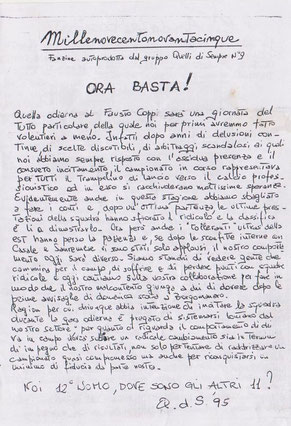 Millenovecentonovantacinque
Fanzine autoprodotta dal gruppo Quelli di Sempre N°9
ORA BASTA!
Quella odierna al Fausto Coppi sarà una giornata del
tutto particolare della quale noi per primi avremmo fatto
volentieri a meno. Infatti dopo anni di delusioni con-
tinue di scelte discutibili, di arbitraggi scandalosi ai quali
noi abbiamo sempre risposto con l'assidua presenza e il
consueto incitamento il campionato in corso rappresentava
per tutti il trampolino di lancio verso il calcio profes-
sionistico ad in esso si racchiudevano moltissime speranze.
Evidentemente anche in questa stagione abbiamo sbagliato
a fare i conti e dopo un'ottima partenza le ultime pres-
tazioni della squadra hanno sfiorato il ridicolo e la classifica
è lì a dimostrarlo. Ora però anche i "tolleranti" ultras della
est hanno perso la pazienza e, se dopo le sconfitte interne con
Casale e Saronnese ci sono stati solo applausi il nostro comporta-
mento oggi sarà diverso. Siamo stanchi di vedere gente che
cammina per il campo da soffrire e di perdere punti con squadre
ridicole e oggi contiamo sulla vostra collaborazione per fare in
modo che il nostro malcontento giunga a chi di dovere dopo le
prime avvisaglie di domenica scorsa a Borgomanero.
Ragion per cui chiunque abbia intenzione di incitare la squadra
durante la gara odierna è pregato di sistemarsi lontano dal
nostro settore per quanto ci riguarda il comportamento di chi
va in campo dovrà subire un radicale cambiamento sia in termini
di impegno che di risultati, non solo per tentare di raddrizzare un
campionato quasi compromesso ma anche per riconquistarsi un
minimo di fiducia da parte nostra.
NOI 12° UOMO, DOVE SONO GLI ALTRI 11?
Q.d.S. '95